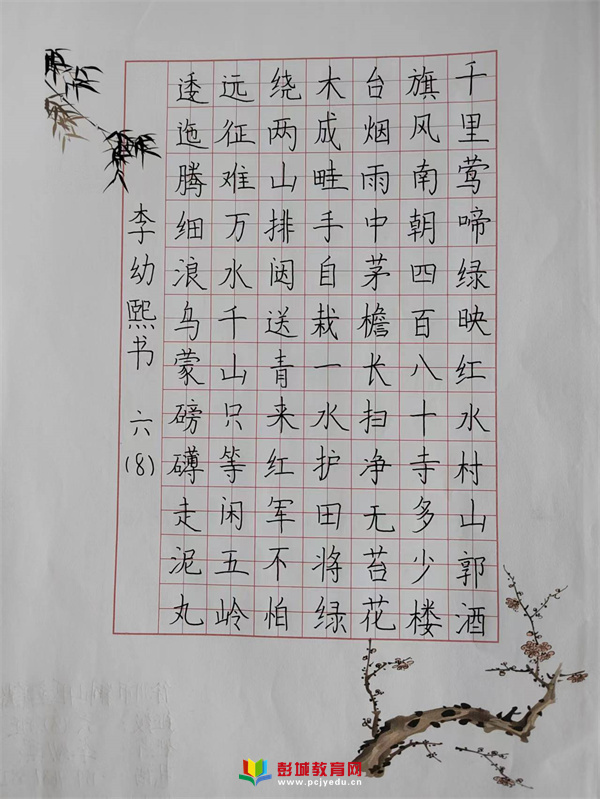 千里莺啼绿映红水村山郭酒
旗风南朝四百八十寺多少楼
台烟雨中茅檐长扫净无苔花
木成畦手自栽一水护田将绿
绕两山排闼送青来红军不怕
远征难万水千山只等闲五岭
逶迤腾细浪乌蒙磅礴走泥丸
李幼熙书 六(8)
彭城教育网
www.pcjyedu.cn